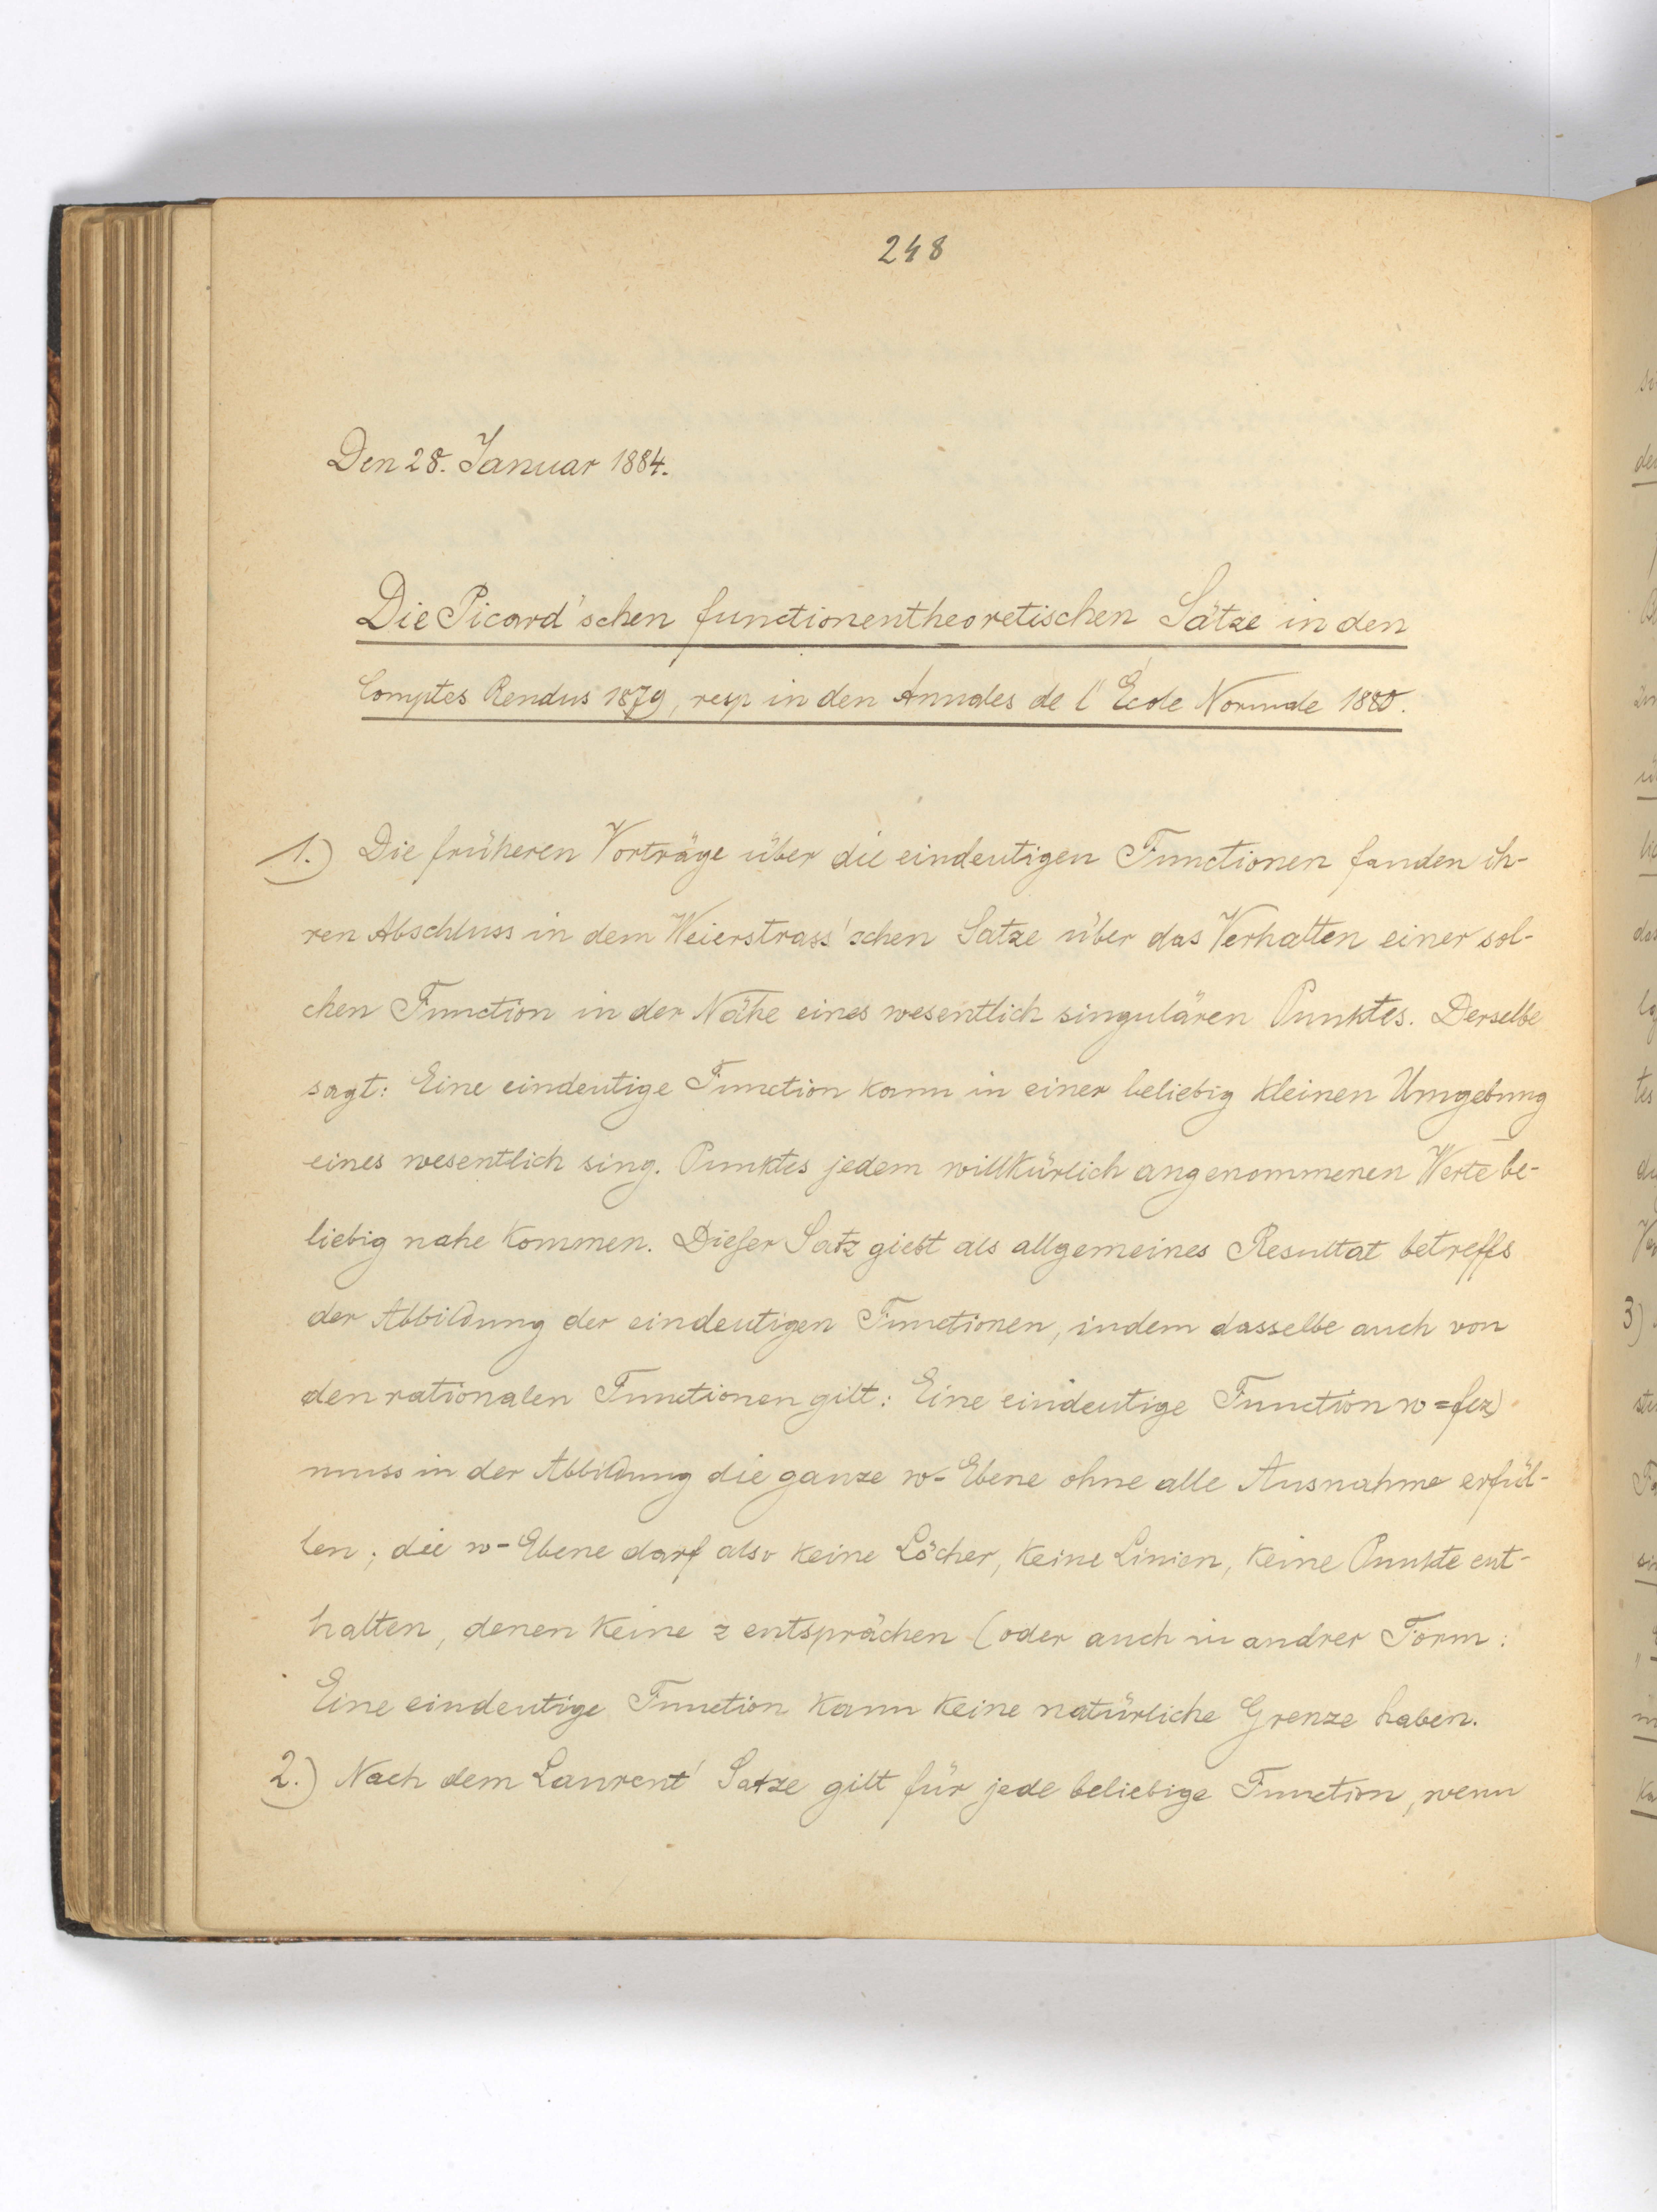 248
Den 28. Januar 1884.
Die Picard'schen functionentheoretischen Sätze in den
Comptes Rendus 1879, resp in den Annales de l'École Normale 1880.
1.) Die früheren Vorträge über die eindeutigen Functionen fanden ih-
ren Abschluss in dem Weierstrass'schen Satze über das Verhalten einer sol-
chen Function in der Nähe eines wesentlich singulären Punktes. Derselbe
sagt: Eine eindeutige Function kann in einer beliebig kleinen Umgebung
eines wesentlich sing. Punktes jedem willkürlich angenommenen Werte be-
liebig nahe kommen. Dieser Satz giebt als allgemeines Resultat betreffs
der Abbildung der eindeutigen Functionen, indem dasselbe auch von
den rationalen Functionen gilt: Eine eindeutige Function w=f(z)
muss in der Abbildung die ganze w-Ebene ohne alle Ausnahme erfül-
len; die w-Ebene darf also keine Löcher, keine Linien, keine Punkte ent-
halten, denen keine z entsprächen (oder auch in andrer Form:
Eine eindeutige Function kann keine natürliche Grenze haben.
2.) Nach dem Laurent' Satze gilt für jede beliebige Function, wenn
3)